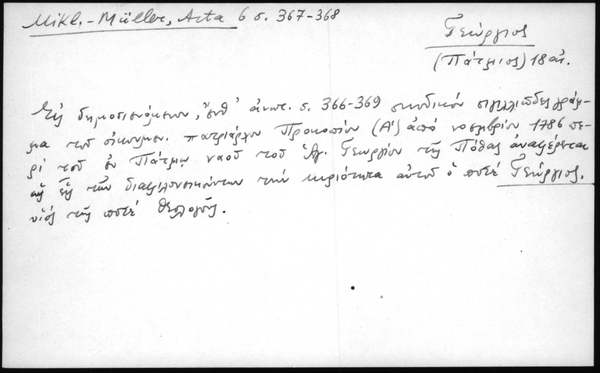 Mikl.-Müller, Acta 6 σ. 367-368
Γεώργιος
(Πάτμιος) 18 αἰ.
Εἰς δημοσιευόμενον, ἔνθ' ἀνωτ. σ. 366-369 συνοδικὸν σιγιλλιῶδες γράμ-
μα τοῦ οἰκουμεν. πατριάρχου Προκοπίου (Α') ἀπὸ νοεμβρίου 1786 πε-
ρὶ τοῦ ἐν Πάτμῳ ναοῦ τοῦ Ἁγ. Γεωργίου τῆς Πόθας ἀναφέρεται
ὡς εἷς τῶν διαφιλονικούντων τὴν κυριότητα αὐτοῦ ὁ ποτὲ Γεώργιος,
υἱὸς τῆς ποτὲ Θεολογοῦς.